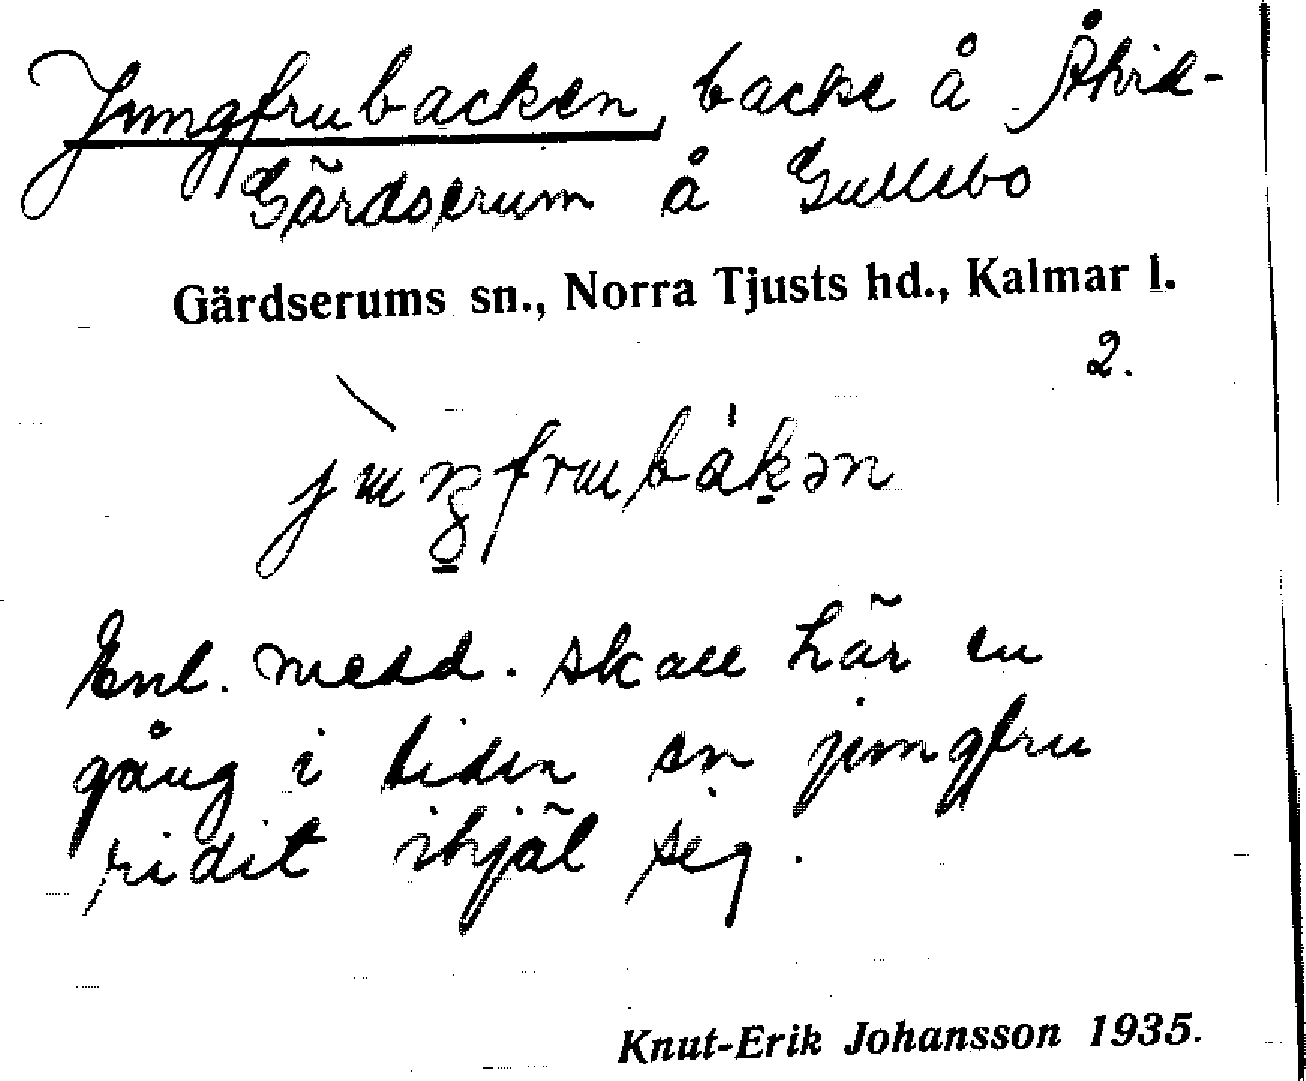 Jungfrubacken, backe å Åtvid-
Gärdserum å Gullebo
Gärdserums sn., Norra Tjusts hd., Kalmar l.
2.
juŋfrubakən
Enl. medd. skall här en
gång i tiden en jungfru
ridit ihjäl sig.
Knut-Erik Johansson 1935.